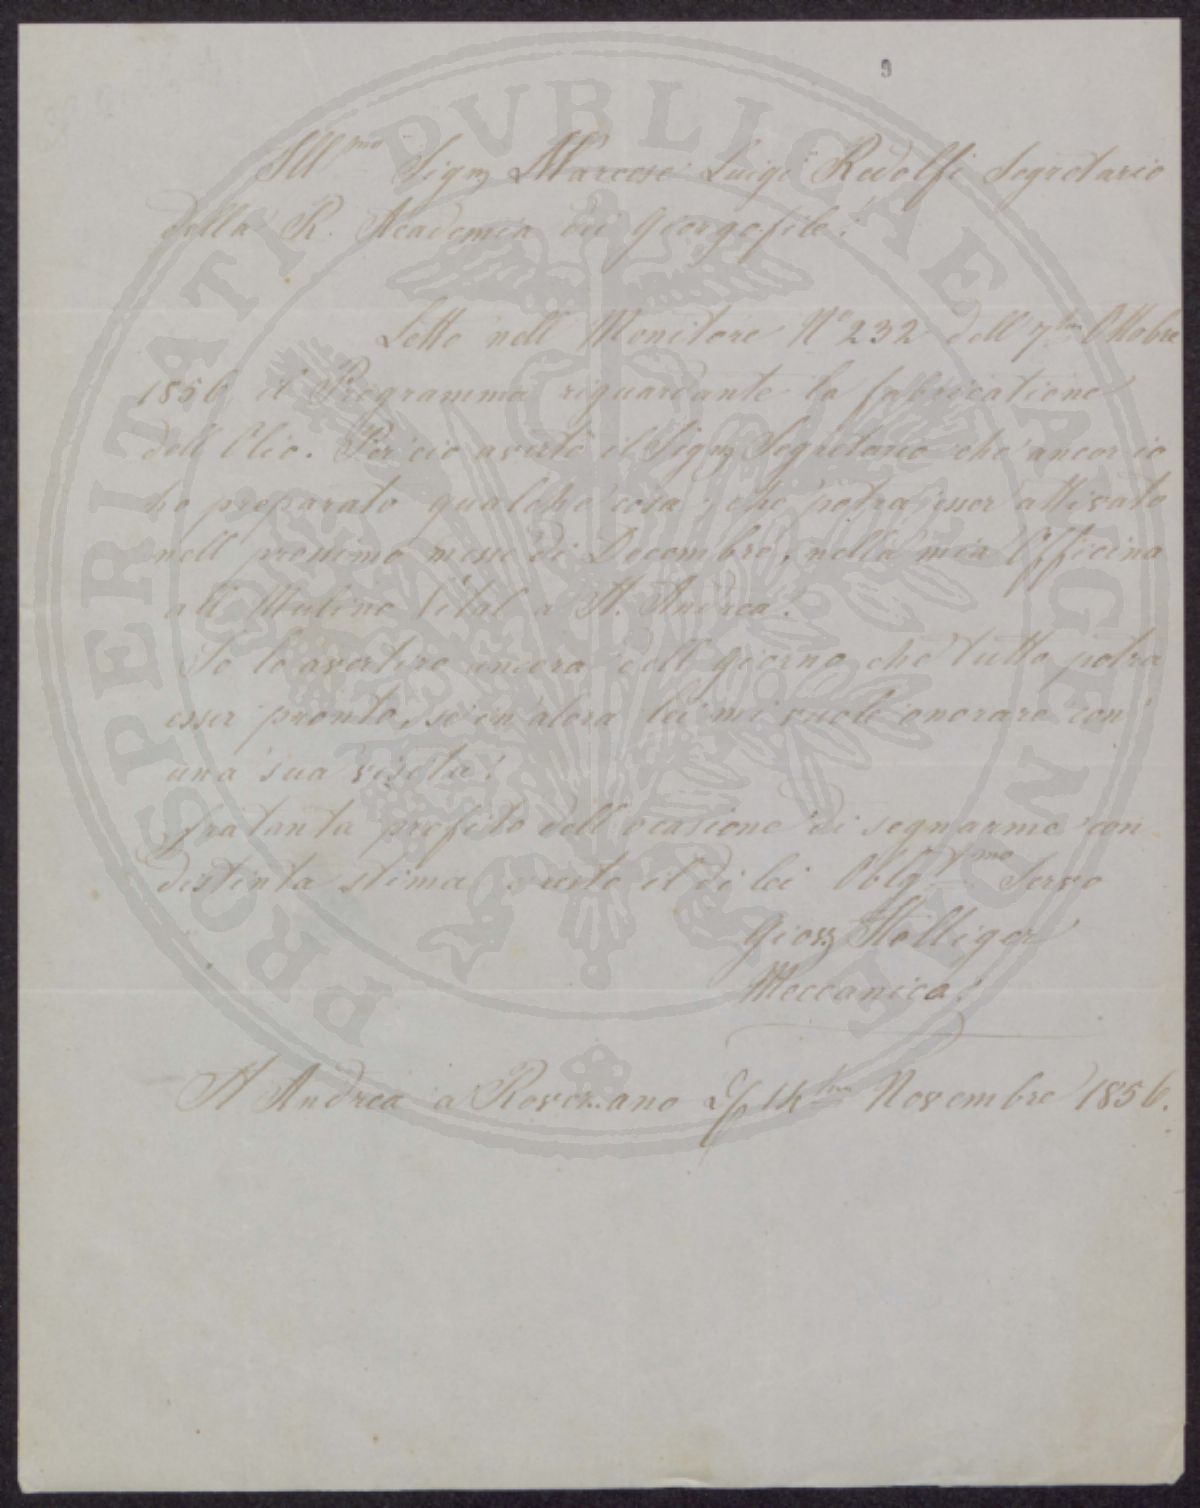 9
Ill.mo Sigr Marcese Luigi Redolfi Segretario
della R. Academia dei Georgofile!
Letto nell Monitore No 232 dell 7ten Ottobre
1856 il Programma riguardante la fabricatione
dell Olio. Per cio averto il Sigr Segretario che ancor io
ho preparato qualche cosa, che potra esser attivato
nell prossimo messe di Decembre, nella mia Officina
all Mulino Vital a St. Andrea!
Io lo avertiro ancora dell giorno che tutto potra
esser pronto, se in alora lei mi vuole onorare con
una sua visita!
fratanta profito dell ocasione di segnarme con
distinta stima il di lei Oblgmo Servo
Holliger
Meccanica!
St Andrea a Rovezzano 14ten Novembre 1856.
PROSPERITATI PVBLICAE AVGENDAE